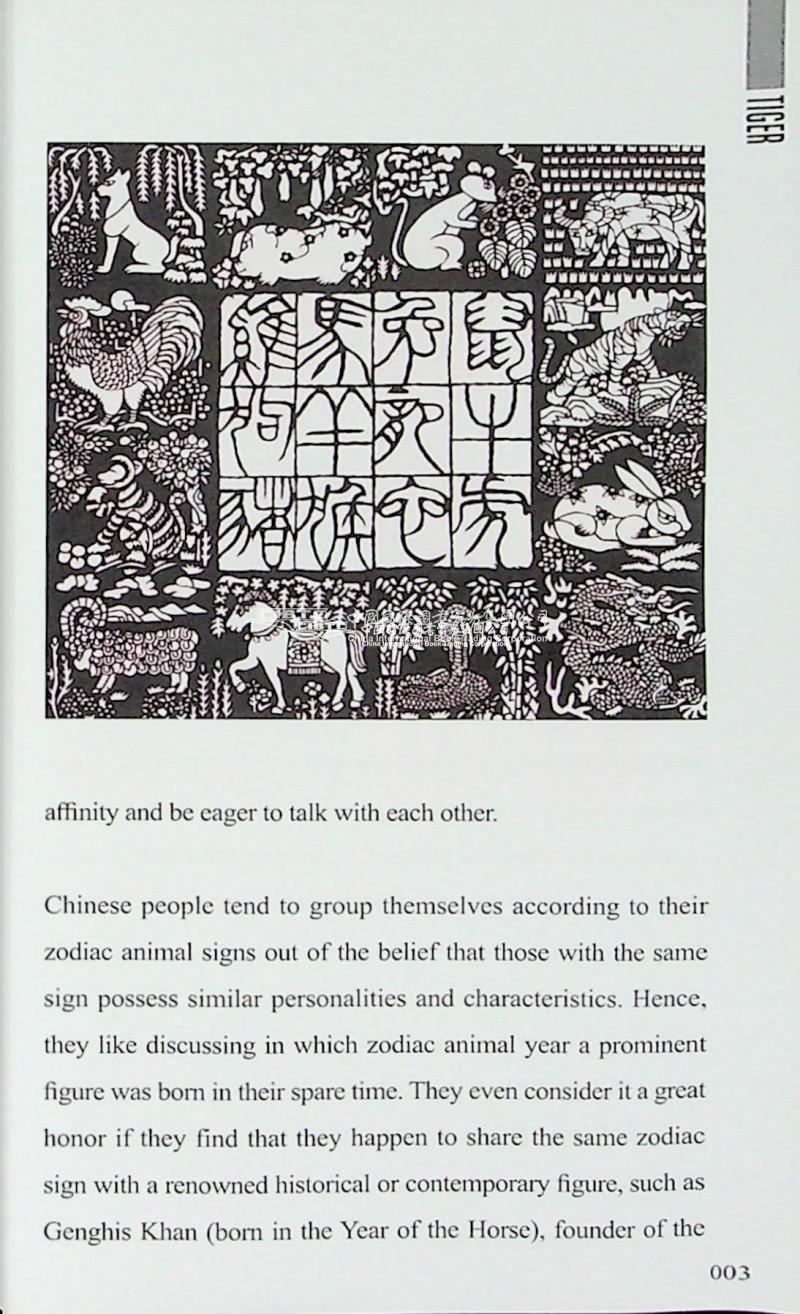 TIGER
雞馬兔鼠
狗羊
牛
豬猴
China International Book Trading Corporation
affinity and be eager to talk with each other.
Chinese people tend to group themselves according to their
zodiac animal signs out of the belief that those with the same
sign possess similar personalities and characteristics. Hence,
they like discussing in which zodiac animal year a prominent
figure was born in their spare time. They even consider it a great
honor if they find that they happen to share the same zodiac
sign with a renowned historical or contemporary figure, such as
Genghis Khan (born in the Year of the Horse), founder of the
003